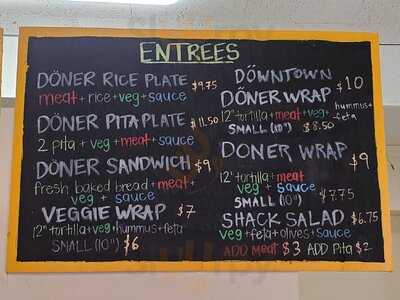 ENTREES
DÖNER RICE PLATE $9.75
meat + rice + veg + sauce
DÖNER PITA PLATE $11.50
2 pita + veg + meat + sauce
DÖNER SANDWICH $9
fresh baked bread + meat +
veg + sauce
VEGGIE WRAP $7
12" tortilla + veg + hummus + feta
SMALL (10") $6
DÖWNTOWN
DÖNER WRAP $10
12" tortilla + meat + veg + hummus +
feta
SMALL (10") $8.50
DONER WRAP $9
12" tortilla + meat
veg + sauce
SMALL (10") $7.75
SHACK SALAD $6.75
veg + feta + olives + sauce
ADD MEAT $3 ADD PITA $2